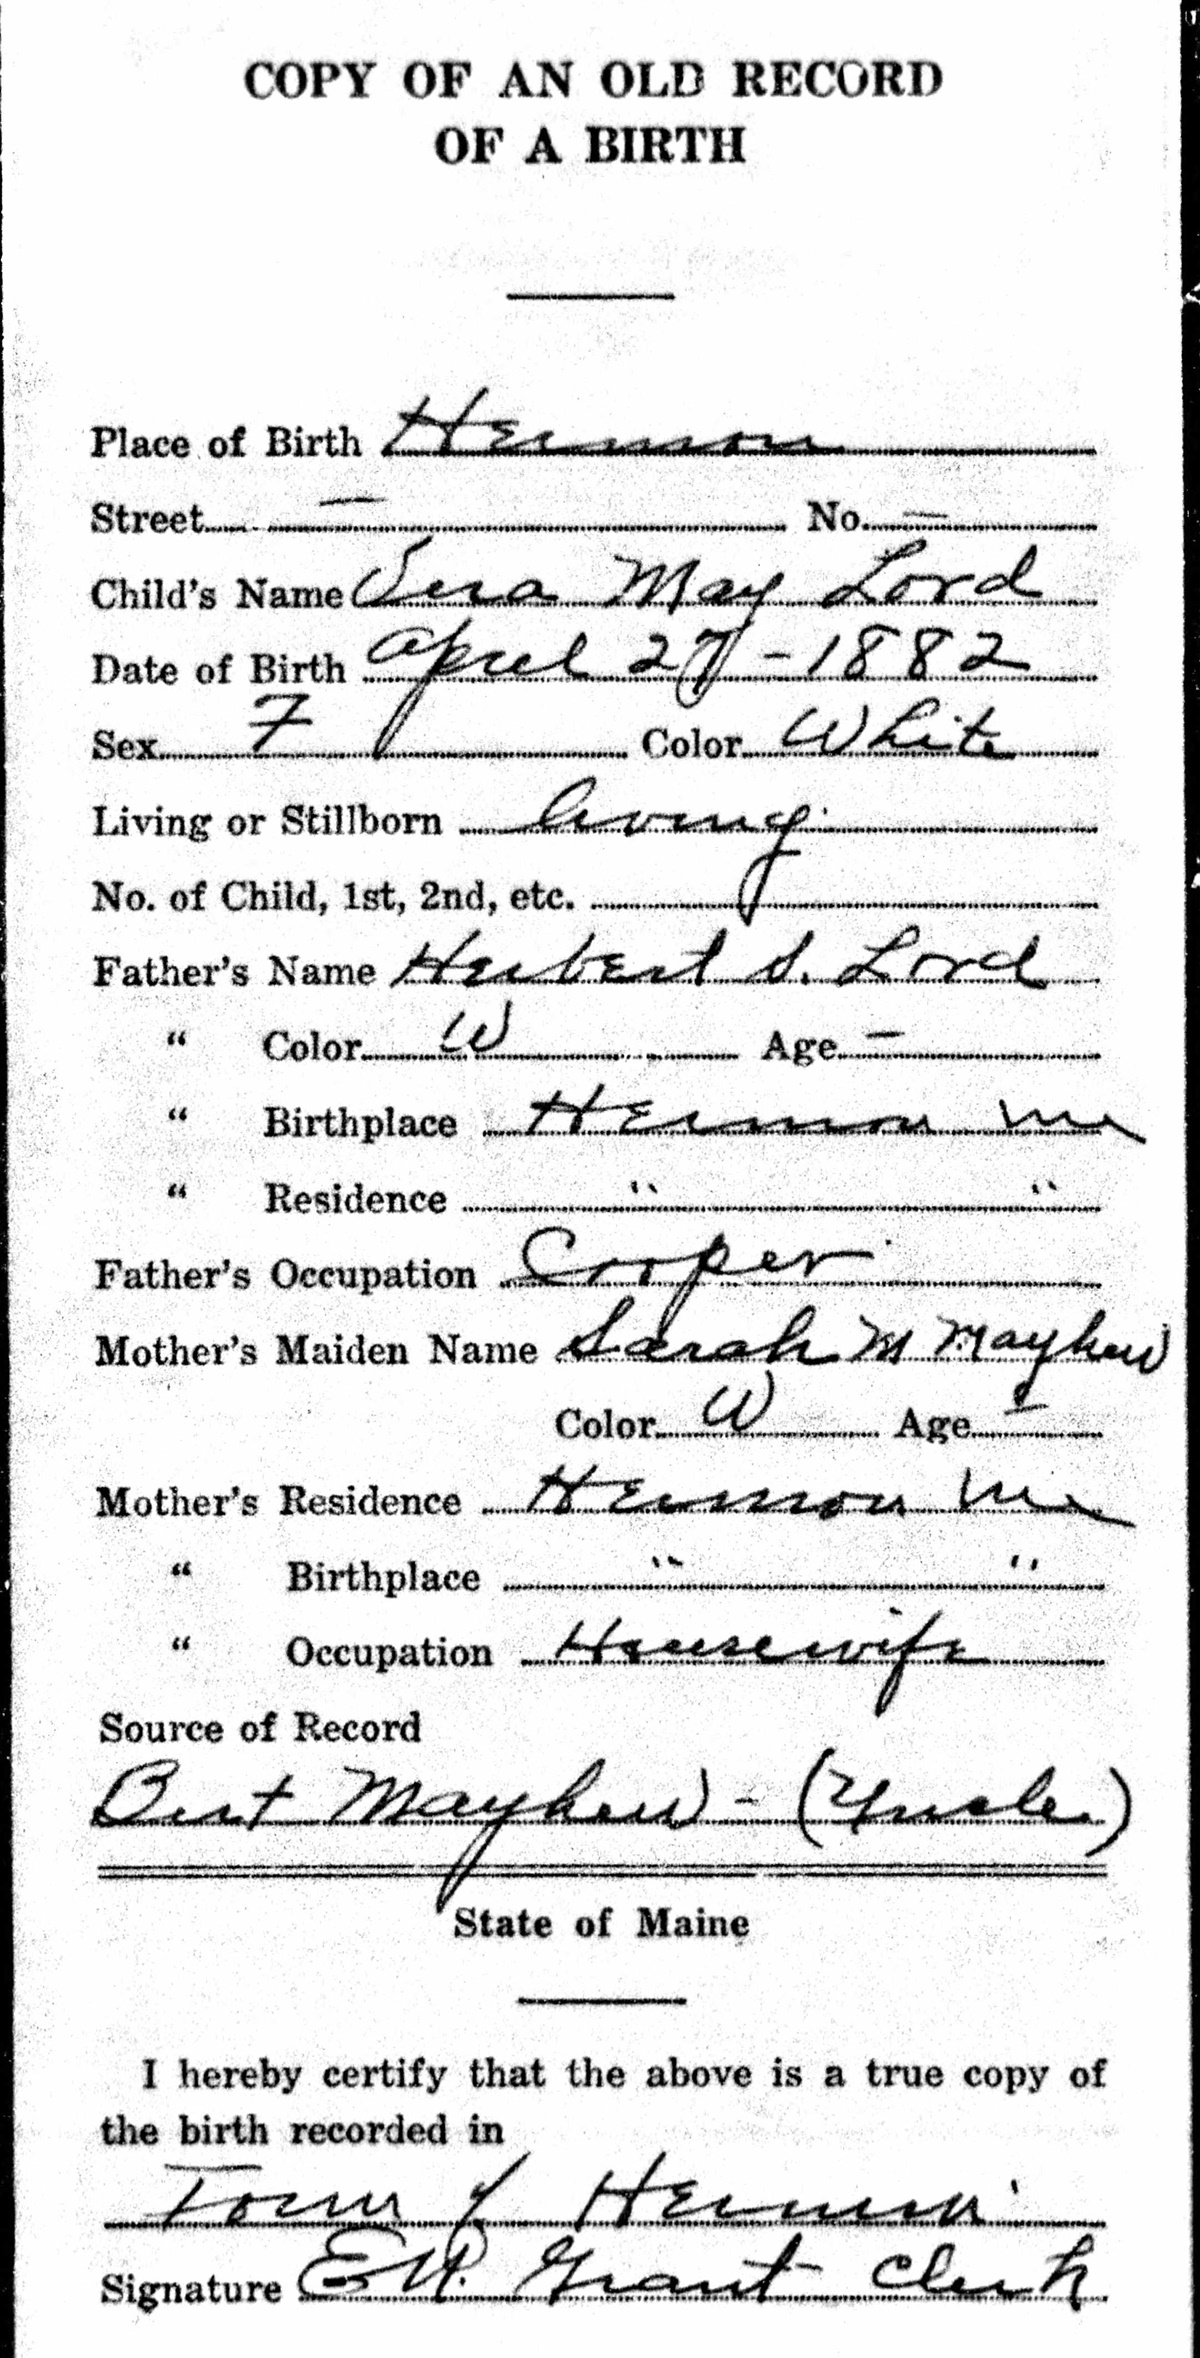 COPY OF AN OLD RECORD
OF A BIRTH
Place of Birth Hermon
Street — No. —
Child's Name Vera May Lord
Date of Birth April 27 - 1882
Sex F Color White
Living or Stillborn living
No. of Child, 1st, 2nd, etc.
Father's Name Herbert S. Lord
" Color W Age —
" Birthplace Hermon Me
" Residence " "
Father's Occupation Cooper
Mother's Maiden Name Sarah M Mayhew
Color W Age —
Mother's Residence Hermon Me
" Birthplace " "
" Occupation Housewife
Source of Record
Bert Mayhew - (Uncle)
State of Maine
I hereby certify that the above is a true copy of
the birth recorded in
Town of Hermon
Signature Grant Clerk